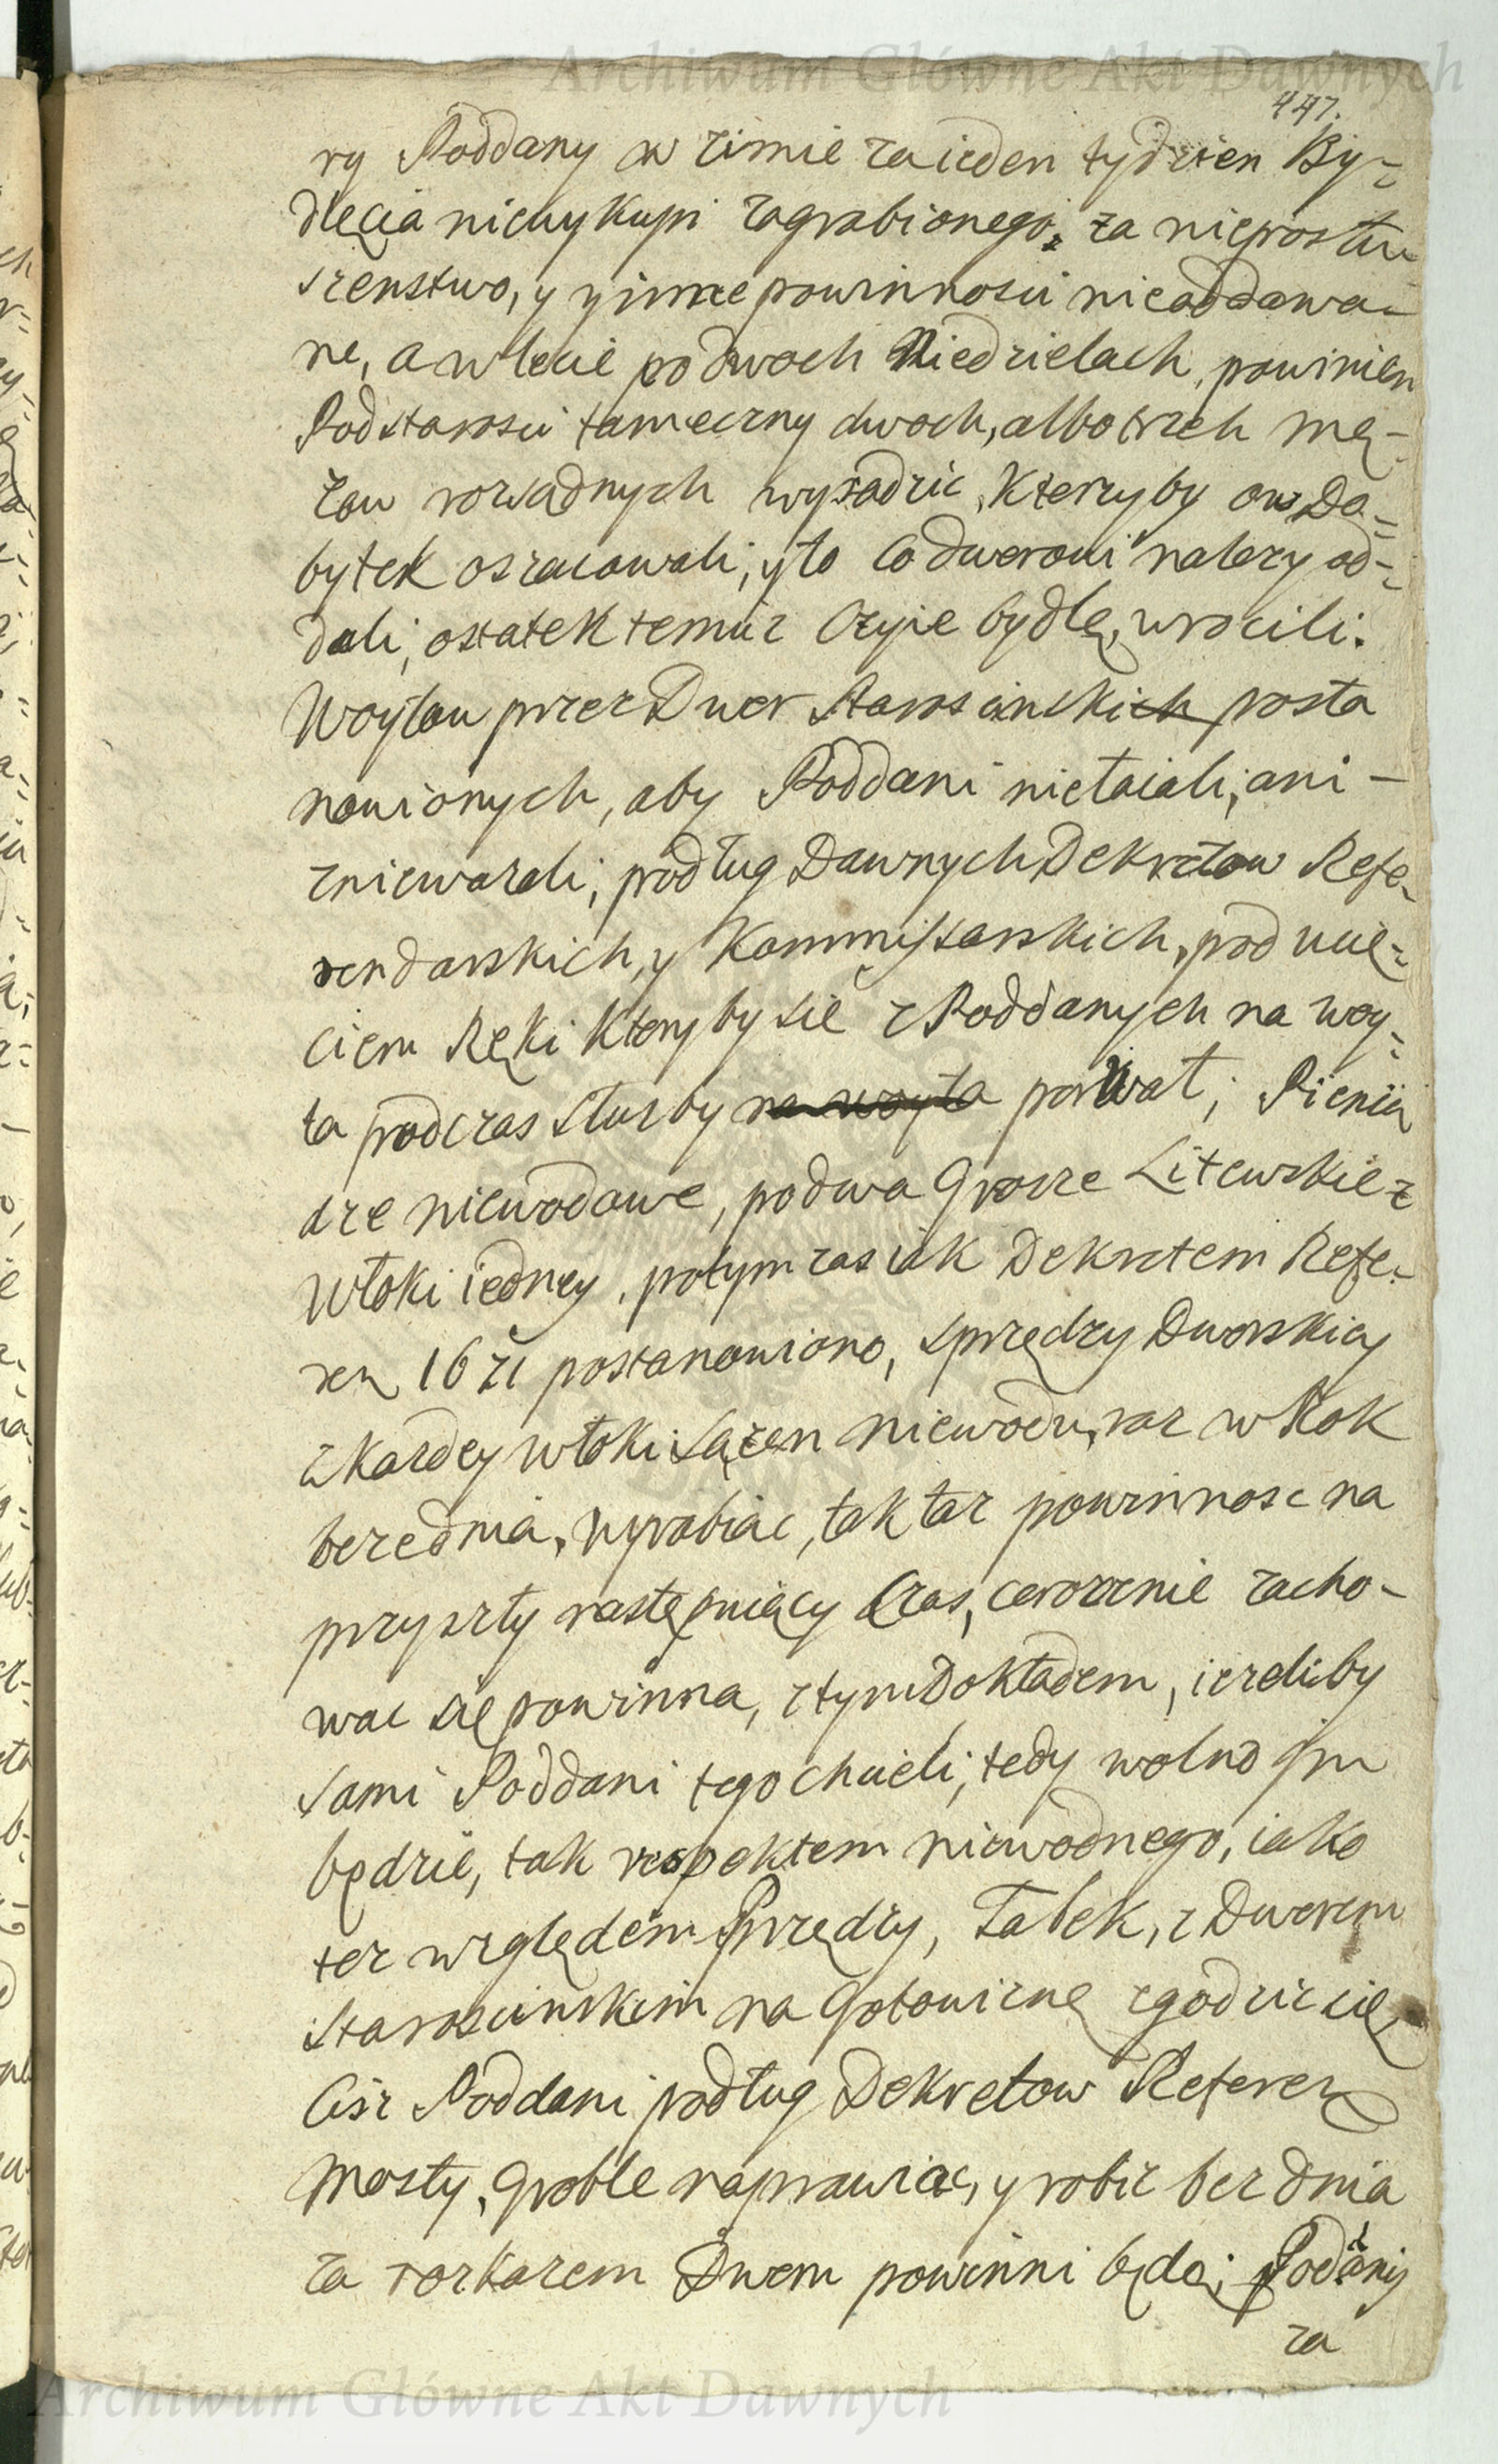 Archiwum Główne Akt Dawnych
447.
ry Poddany w zimie za ieden tydzien By-
dlęcia niewykupi zagrabionego, za nieposłu
szenstwo, y y inne powinnosci nieoddawa-
ne, a w lecie po dwoch Niedzielach, powinien
Podstarosci tameczny dwoch, albo trzech mę-
zow rozsadnych wysadzic, Ktorzyby ow Do-
bytek oszacowali, y to co dworowi nalezy od-
dali, ostatek temuz Czyie bydlę, wrocili.
Woytow przez Dwor Staroscinskich posta
nowionych, aby Poddani nietaiali, ani -
zniewazali, podług Dawnych Dekretow Refe-
rendarskich, y Kommissarskich, pod ucię-
ciem Ręki Ktory by sie z Poddanych na woy-
ta podczas Słuzby na woyta porwał; Pienią
dze niewodowe, po dwa Grosze Litewskie z
włoki iedney, potym zas iak Dekretem Refe-
ren 1671 postanowiono, z przędzy Dworskiey
z Kazdey włoki sązen niewodu, raz w Rok
bezednia, wyrabiac, tak taz powinnosc na
przyszły nastepuiący Czas, corocznie zacho-
wac się powinna, z tym Dokładem, iezeliby
sami Poddani tego chcieli, tedy wolno jm
będzie, tak respektem niewodnego, iako
tez względem Przędzy, Talek, z Dworem
Starosciskim na Gotowiznę zgodzic się,
Ciz Poddani podług Dekretow Referen
Mosty, Groble naprawiac, y robic bez dnia
za rozkazem Dworu powinni będą; Poddani
za
Archiwum Główne Akt Dawnych